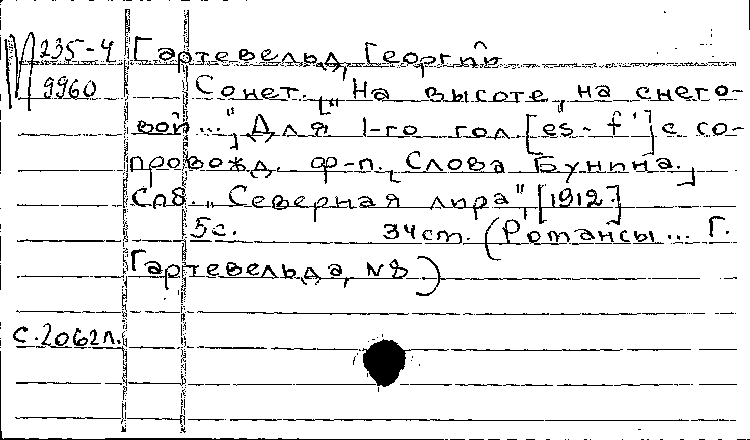 М 235-4 Гартевельд, Георгий
9960 Сонет. ["На высоте, на снего-
вой..."] Для 1-го гол. [es - f'] с со-
провожд. ф-п. [Слова Бунина.]
Спб. "Северная лира", [1912]
5с. 34 ст. (Романсы... Г.
Гартевельда, N8.)
с. 2062 п.